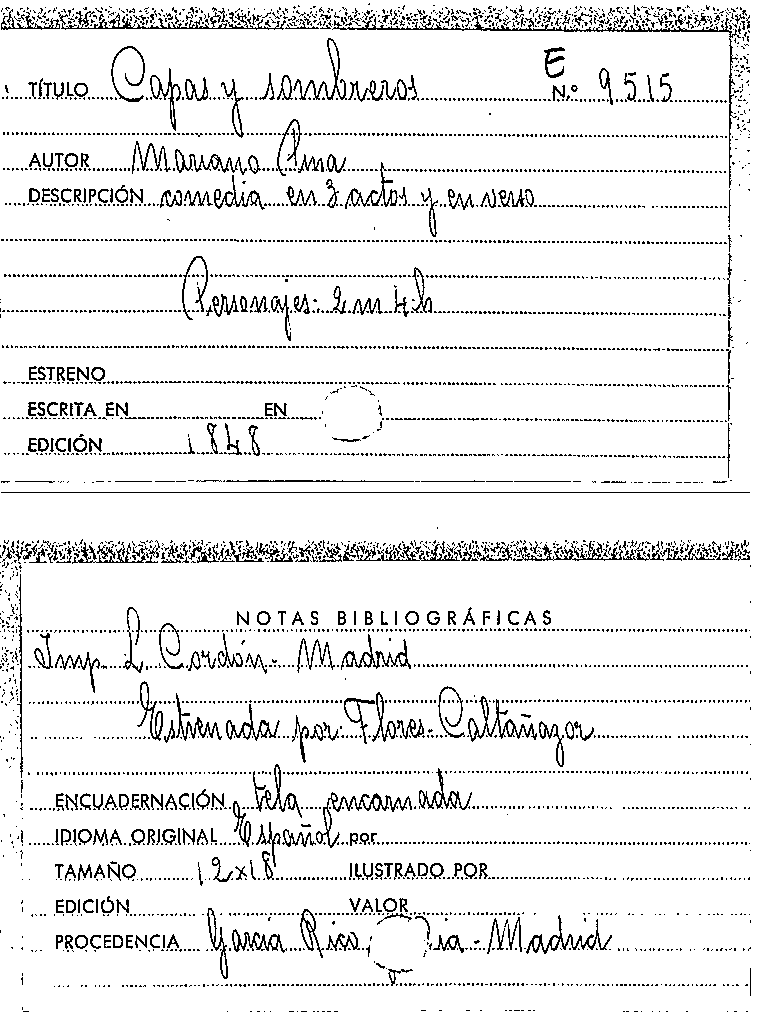 E
TÍTULO Capas y sombreros N.º 9515
AUTOR Mariano Pina
DESCRIPCIÓN comedia en 3 actos y en verso
Personajes: 2 m 4 h
ESTRENO
ESCRITA EN EN
EDICIÓN 1848
NOTAS BIBLIOGRÁFICAS
Imp. L. Cordón - Madrid
Estrenada por: Flores - Caltañazor
ENCUADERNACIÓN tela encarnada
IDIOMA ORIGINAL Español por
TAMAÑO 12x18 ILUSTRADO POR
EDICIÓN VALOR
PROCEDENCIA García Rico - Madrid